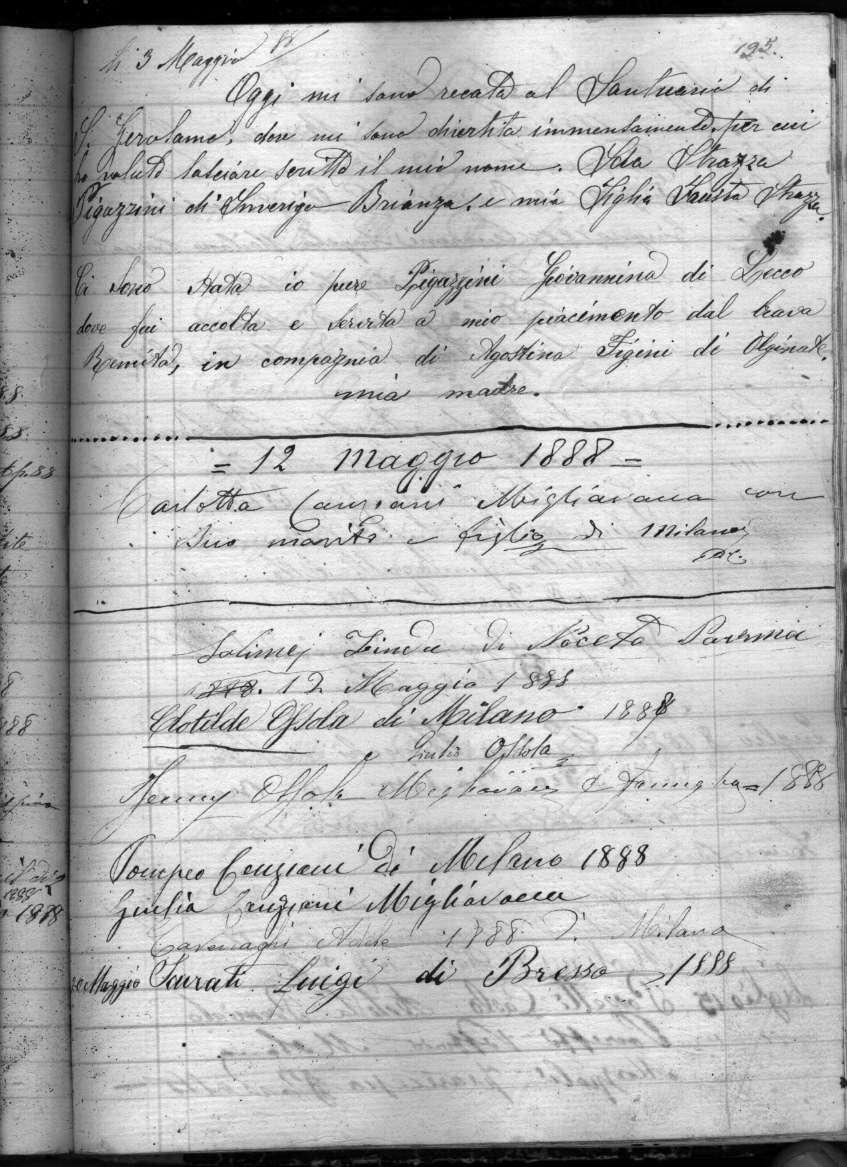 li 3 Maggio 88/
125.
Oggi mi sono recata al Santuario di
S. Gerolamo, dove mi sono divertita immensamente, per cui
ho voluto lasciare scritto il mio nome. Strazza
Pigazzini di Inverigo Brianza. e mia figlia Fausta Strazza.
Ci sono stata io pure Pigazzini Giovannina di Lecco
dove fui accolta e servita a mio piacimento dal bravo
Remita, in compagnia di Agostina Figini di Olginate,
mia madre.
= 12 Maggio 1888 =
Carlotta Canziani Migliavacca con
suo marito e figlio di Milano
di Noceto Parma
12 Maggio 1888
Clotilde Ossola di Milano 1888
e Giulio Ossola
Jenny Ossola Migliavacca e famiglia = 1888
Pompeo Canziani di Milano 1888
Giulia Canziani Migliavacca
Cavenaghi Adele 1888 di Milano
Maggio Scurati Luigi di Bresso 1888